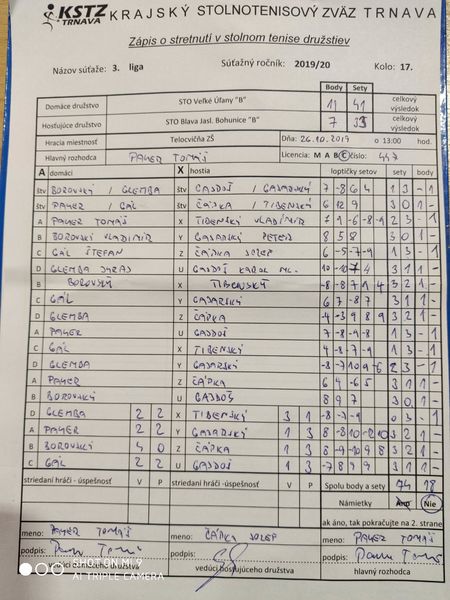 KSTZ TRNAVA KRAJSKÝ STOLNOTENISOVÝ ZVÄZ TRNAVA
Zápis o stretnutí v stolnom tenise družstiev
Názov súťaže: 3. liga Súťažný ročník: 2019/20 Kolo: 17.
Body Sety
Domáce družstvo STO Veľké Úľany "B" 11 41 celkový výsledok
Hosťujúce družstvo STO Blava Jasl. Bohunice "B" 7 33 celkový výsledok
Hracia miestnosť Telocvičňa ZŠ Dňa: 26.10.2019 o 13:00 hod.
Hlavný rozhodca PAYER TOMÁŠ Licencia: M A B C číslo: 447
A domáci X hostia loptičky setov sety body
štv BOROVSKÝ / GLEMBA štv GAŠDOŠ / 7 -8 6 4 1 3 - 1
štv PAYER / GÁL štv ČAPKA / TIBENSKÝ 6 12 9 3 0 1 -
A PAYER TOMÁŠ X TIBENSKÝ VLADIMÍR 7 9 -6 -8 -9 2 3 - 1
B BOROVSKÝ VLADIMÍR Y PETER 8 5 8 3 0 1 -
C GÁL ŠTEFAN Z ČAPKA JOZEF 6 -5 -7 -9 1 3 - 1
D GLEMBA U KAROL ML. 10 -10 7 4 3 1 1 -
B BOROVSKÝ X TIBENSKÝ -8 -8 7 1 4 3 2 1 -
C GÁL Y 6 7 -8 7 3 1 1 -
D GLEMBA Z ČAPKA -4 -3 9 8 9 3 2 1 -
A PAYER U GAŠDOŠ 7 -8 -9 -8 1 3 - 1
C GÁL X TIBENSKÝ 4 -8 -7 -9 1 3 - 1
D GLEMBA Y -8 -7 10 9 -6 2 3 - 1
A PAYER Z ČAPKA 6 4 -6 5 3 1 1 -
B BOROVSKÝ U GAŠDOŠ 8 9 7 3 0 1 -
D GLEMBA 2 2 X TIBENSKÝ 3 1 -8 -7 -9 0 3 - 1
A PAYER 2 2 Y 1 3 8 -8 10 -2 10 3 2 1 -
B BOROVSKÝ 4 0 Z ČAPKA 1 3 8 -9 -10 9 8 3 2 1 -
C GÁL 2 2 U GAŠDOŠ 1 3 -7 8 9 9 3 1 1 -
striedaní hráči - úspešnosť V P striedaní hráči - úspešnosť V P Spolu body a sety 74 18
Námietky Áno Nie
ak áno, tak pokračujte na 2. strane
meno: PAYER TOMÁŠ meno: ČAPKA JOZEF meno: PAYER TOMÁŠ
podpis: podpis: podpis:
vedúci domáceho družstva vedúci hosťujúceho družstva hlavný rozhodca
SHOT ON
AI TRIPLE CAMERA